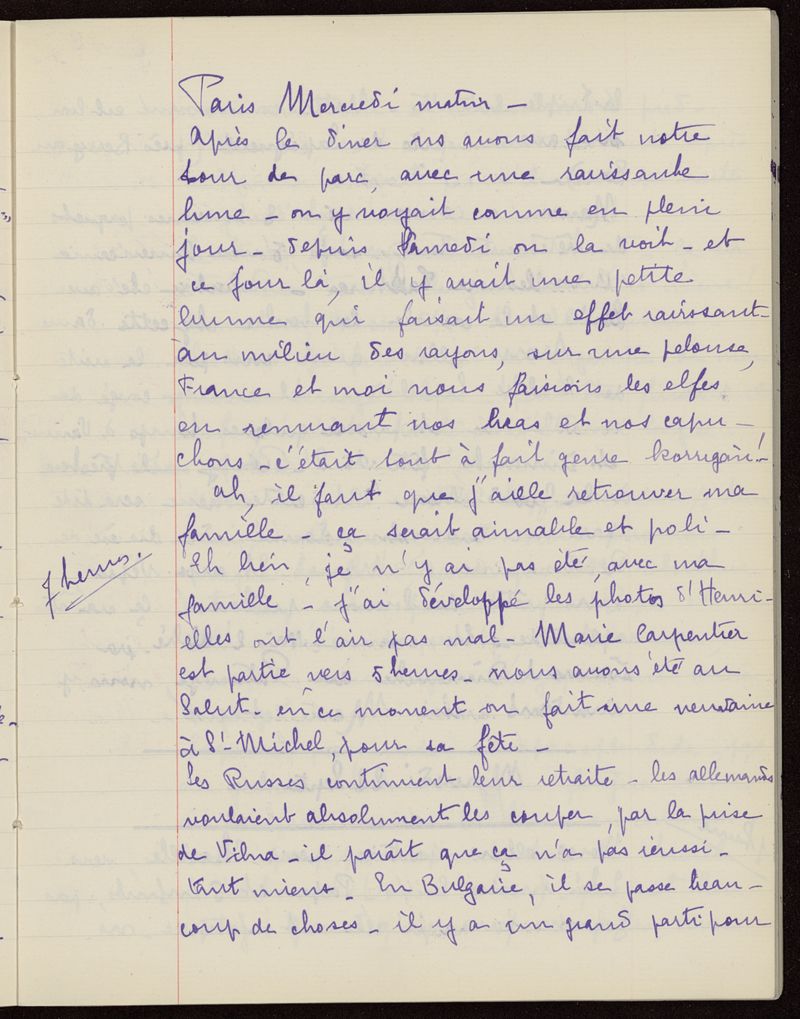 Paris Mercredi matin –
Après le dîner ns avons fait notre
tour de parc, avec une ravissante
lune – on y voyait comme en plein
jour – depuis Samedi on la voit – et
ce jour là, il y avait une petite
brume qui faisait un effet ravissant –
au milieu des rayons, sur une pelouse,
France et moi nous faisions les elfes
en remuant nos bras et nos capu –
chons – c'était tout à fait genre korrigan! –
ah, il faut que j'aille retrouver ma
famille – ça serait aimable et poli –
7 heures.
Eh bien, je n'y ai pas été, avec ma
famille – j'ai développé les photos d'Henri –
elles ont l'air pas mal – Marie Carpentier
est partie vers 5 heures – nous avons été au
Salut – en ce moment on fait une neuvaine
à St-Michel, pour sa fête –
Les Russes continuent leur retraite – les allemands
voulaient absolument les couper, par la prise
de Vilna – il paraît que ça n'a pas réussi –
tant mieux – En Bulgarie, il se passe beau –
coup de choses – il y a un grand parti pour